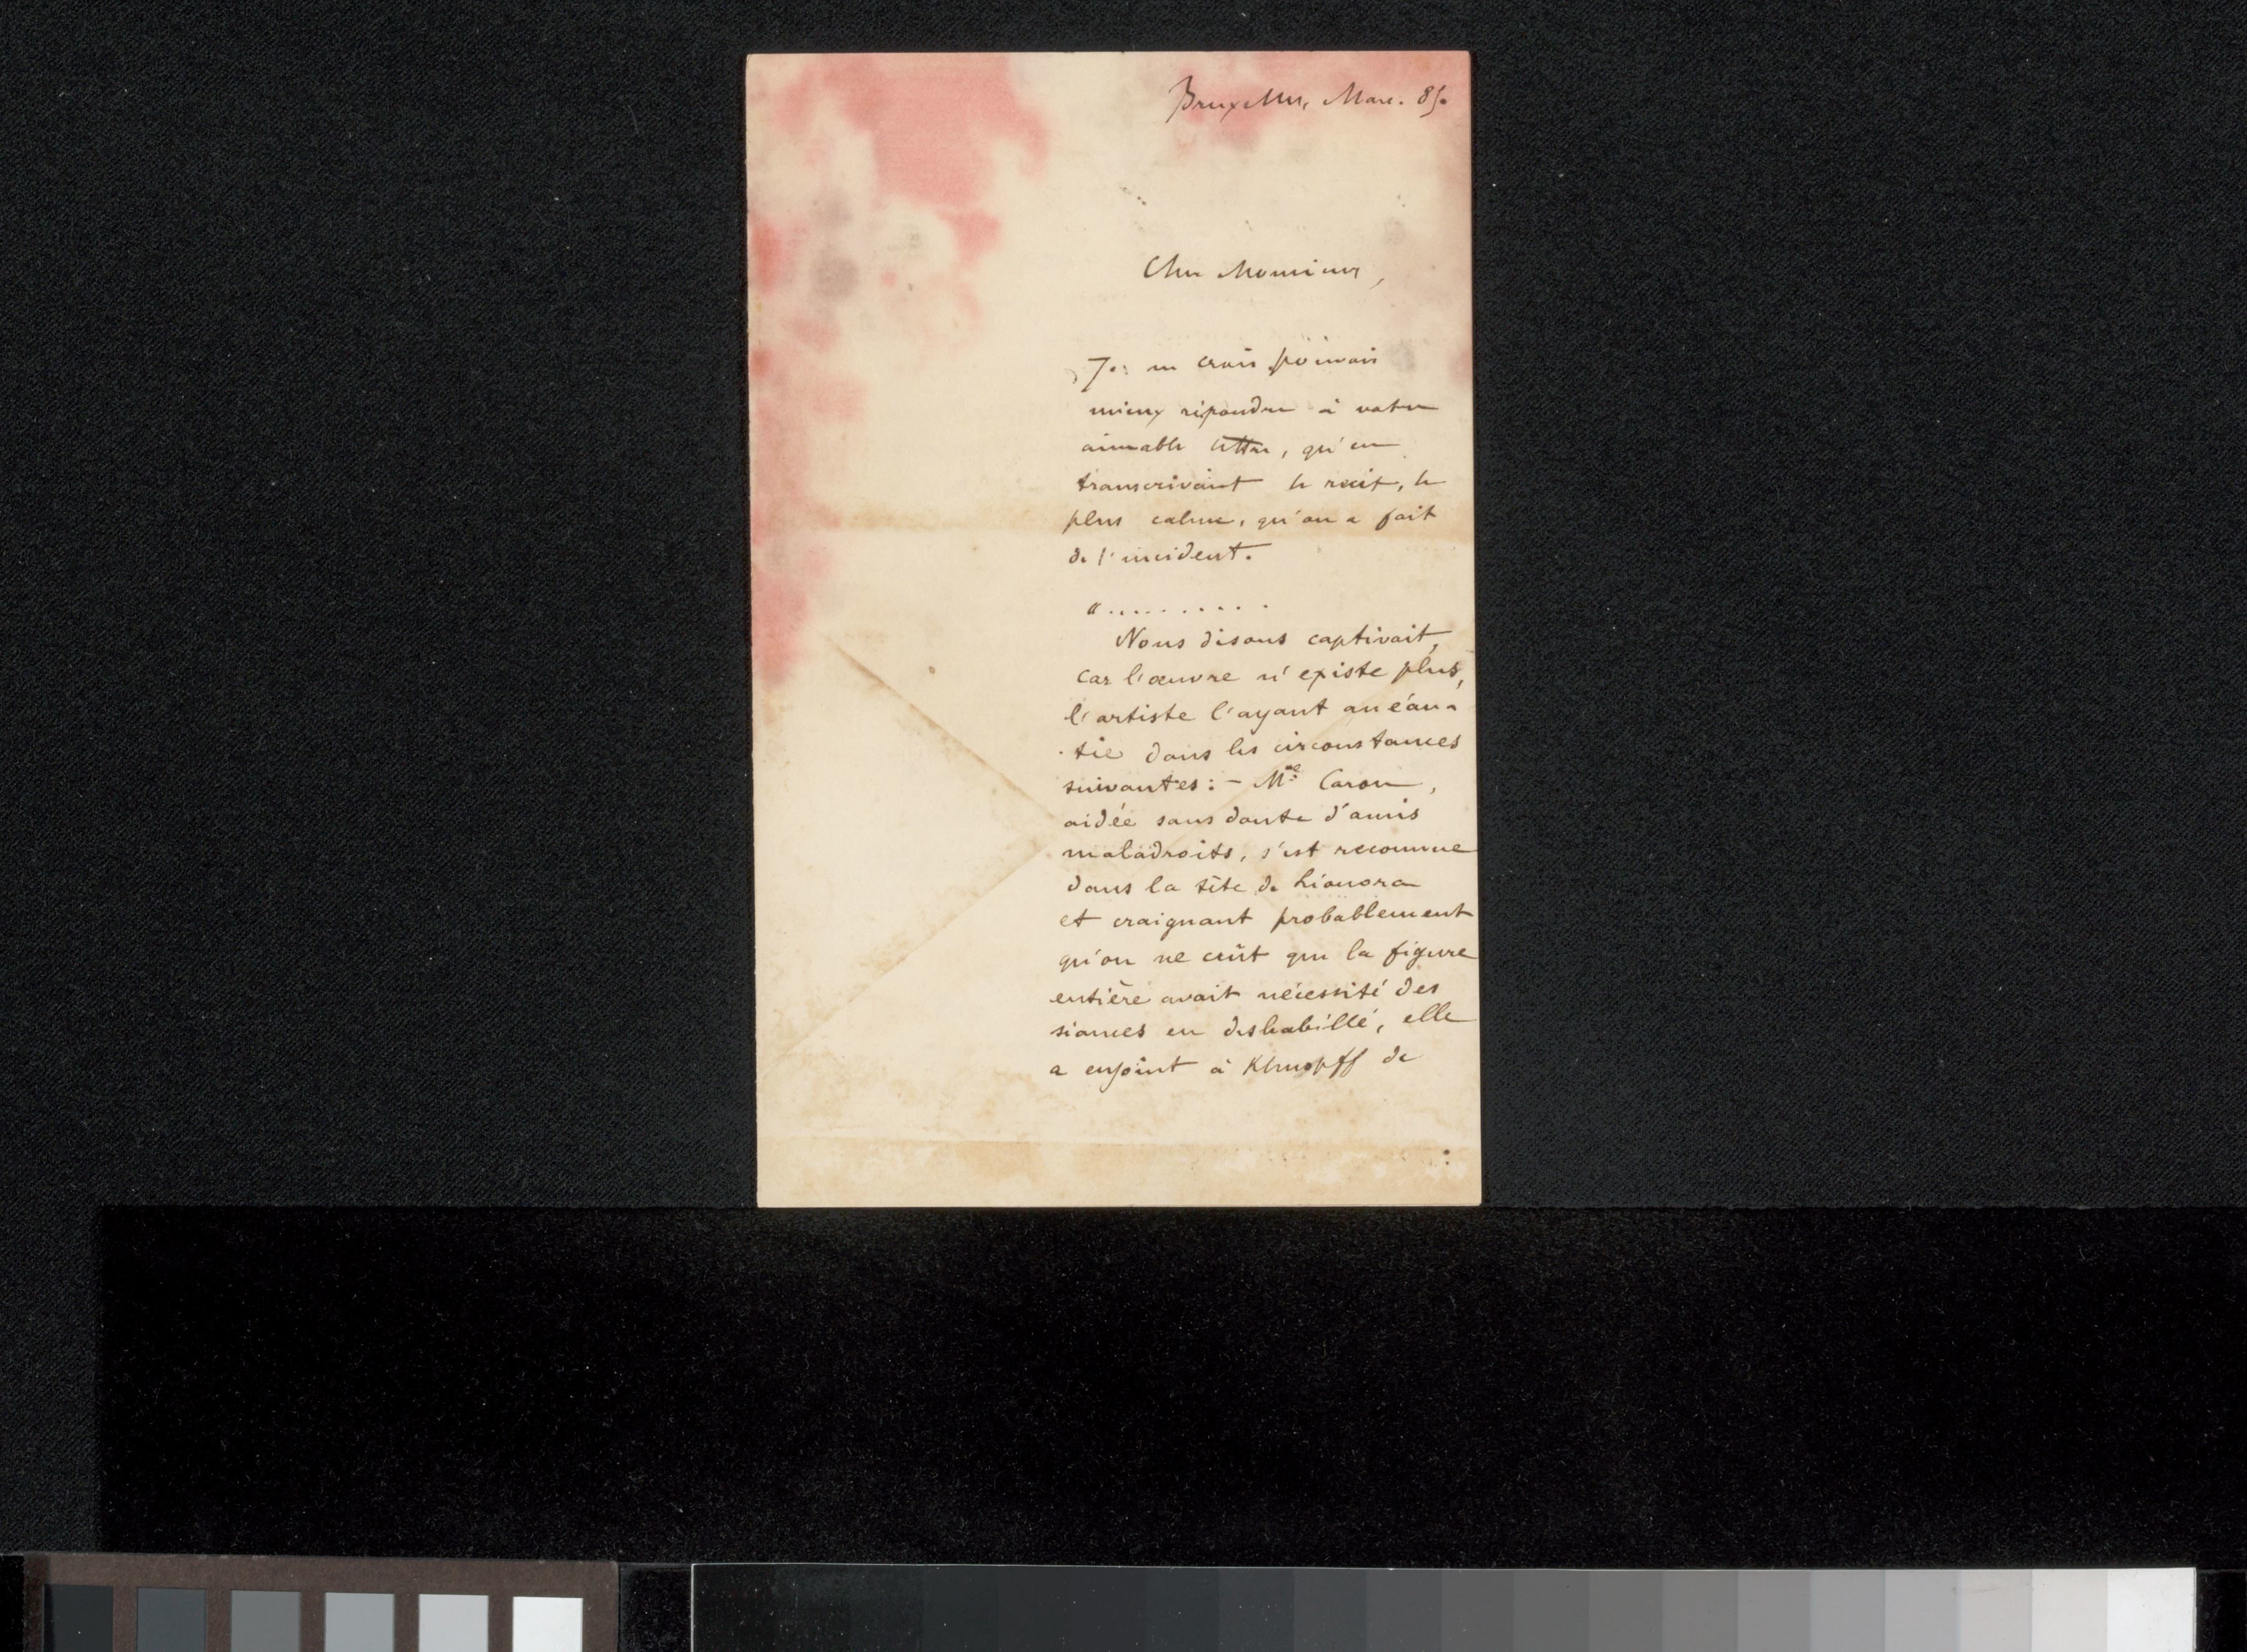 Bruxelles, Mars. 85.
Cher Monsieur,
Je ne crois pouvoir
mieux répondre à votre
aimable lettre, qu'en
transcrivant le récit, le
plus calme, qu'on a fait
de l'incident.
"..........
Nous disons captivait,
car l'œuvre n'existe plus,
l'artiste l'ayant anéan-
-tie dans les circonstances
suivantes: - Me Caron,
aidée sans doute d'amis
maladroits, s'est reconnue
dans la tête de Léonora
et craignant probablement
qu'on ne crût que la figure
entière avait nécessité des
séances en deshabillé, elle
a enjoint à Khnopff de